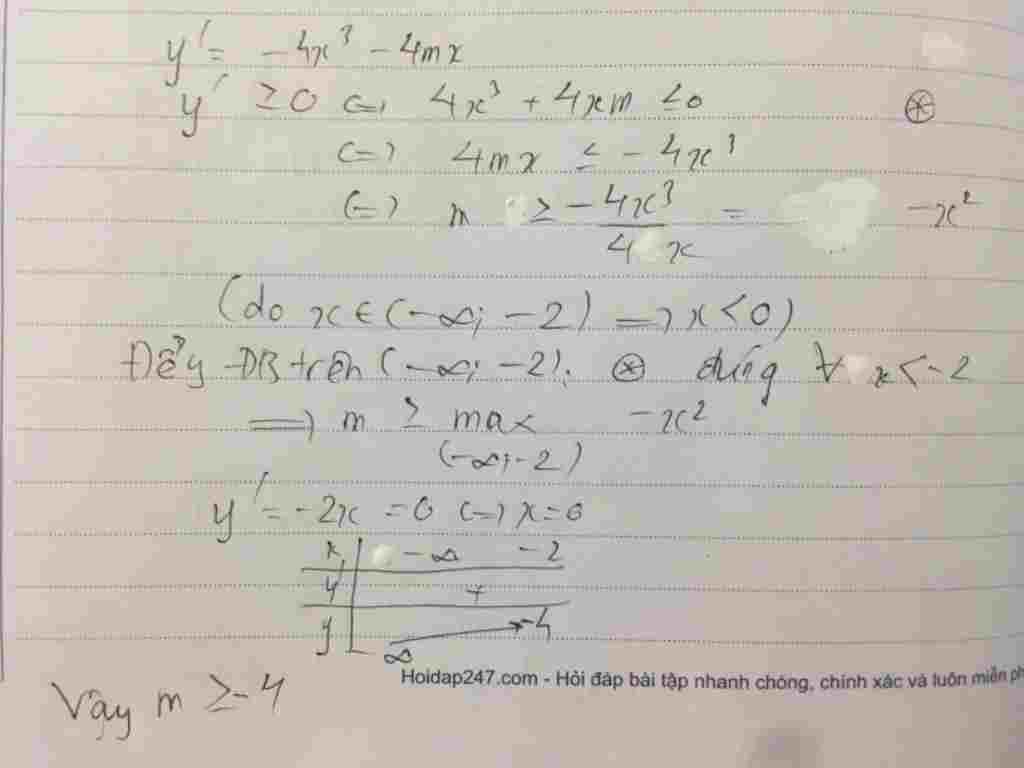 y' = -4x³ - 4mx
y' ≥ 0 (=) 4x³ + 4xm ≤ 0 ⊛
(=) 4mx ≤ -4x³
(=) m ≥ -4x³/4x = -x²
(do x ∈ (-∞; -2) => x < 0)
Để y ĐB trên (-∞; -2). ⊛ đúng ∀ x < -2
=> m ≥ max -x²
(-∞; -2)
y' = -2x = 0 (=) x = 0
x -∞ -2
y' +
y ∞ -4
Hoidap247.com - Hỏi đáp bài tập nhanh chóng, chính xác và luôn miễn ph
Vậy m ≥ -4